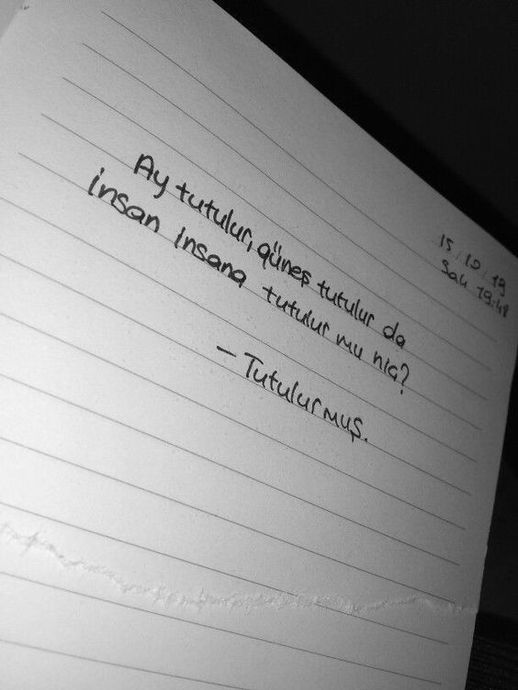 15.10.19
Salı 19:48
Ay tutulur, güneş tutulur da
insan insana tutulur mu hiç?
- Tutulurmuş.